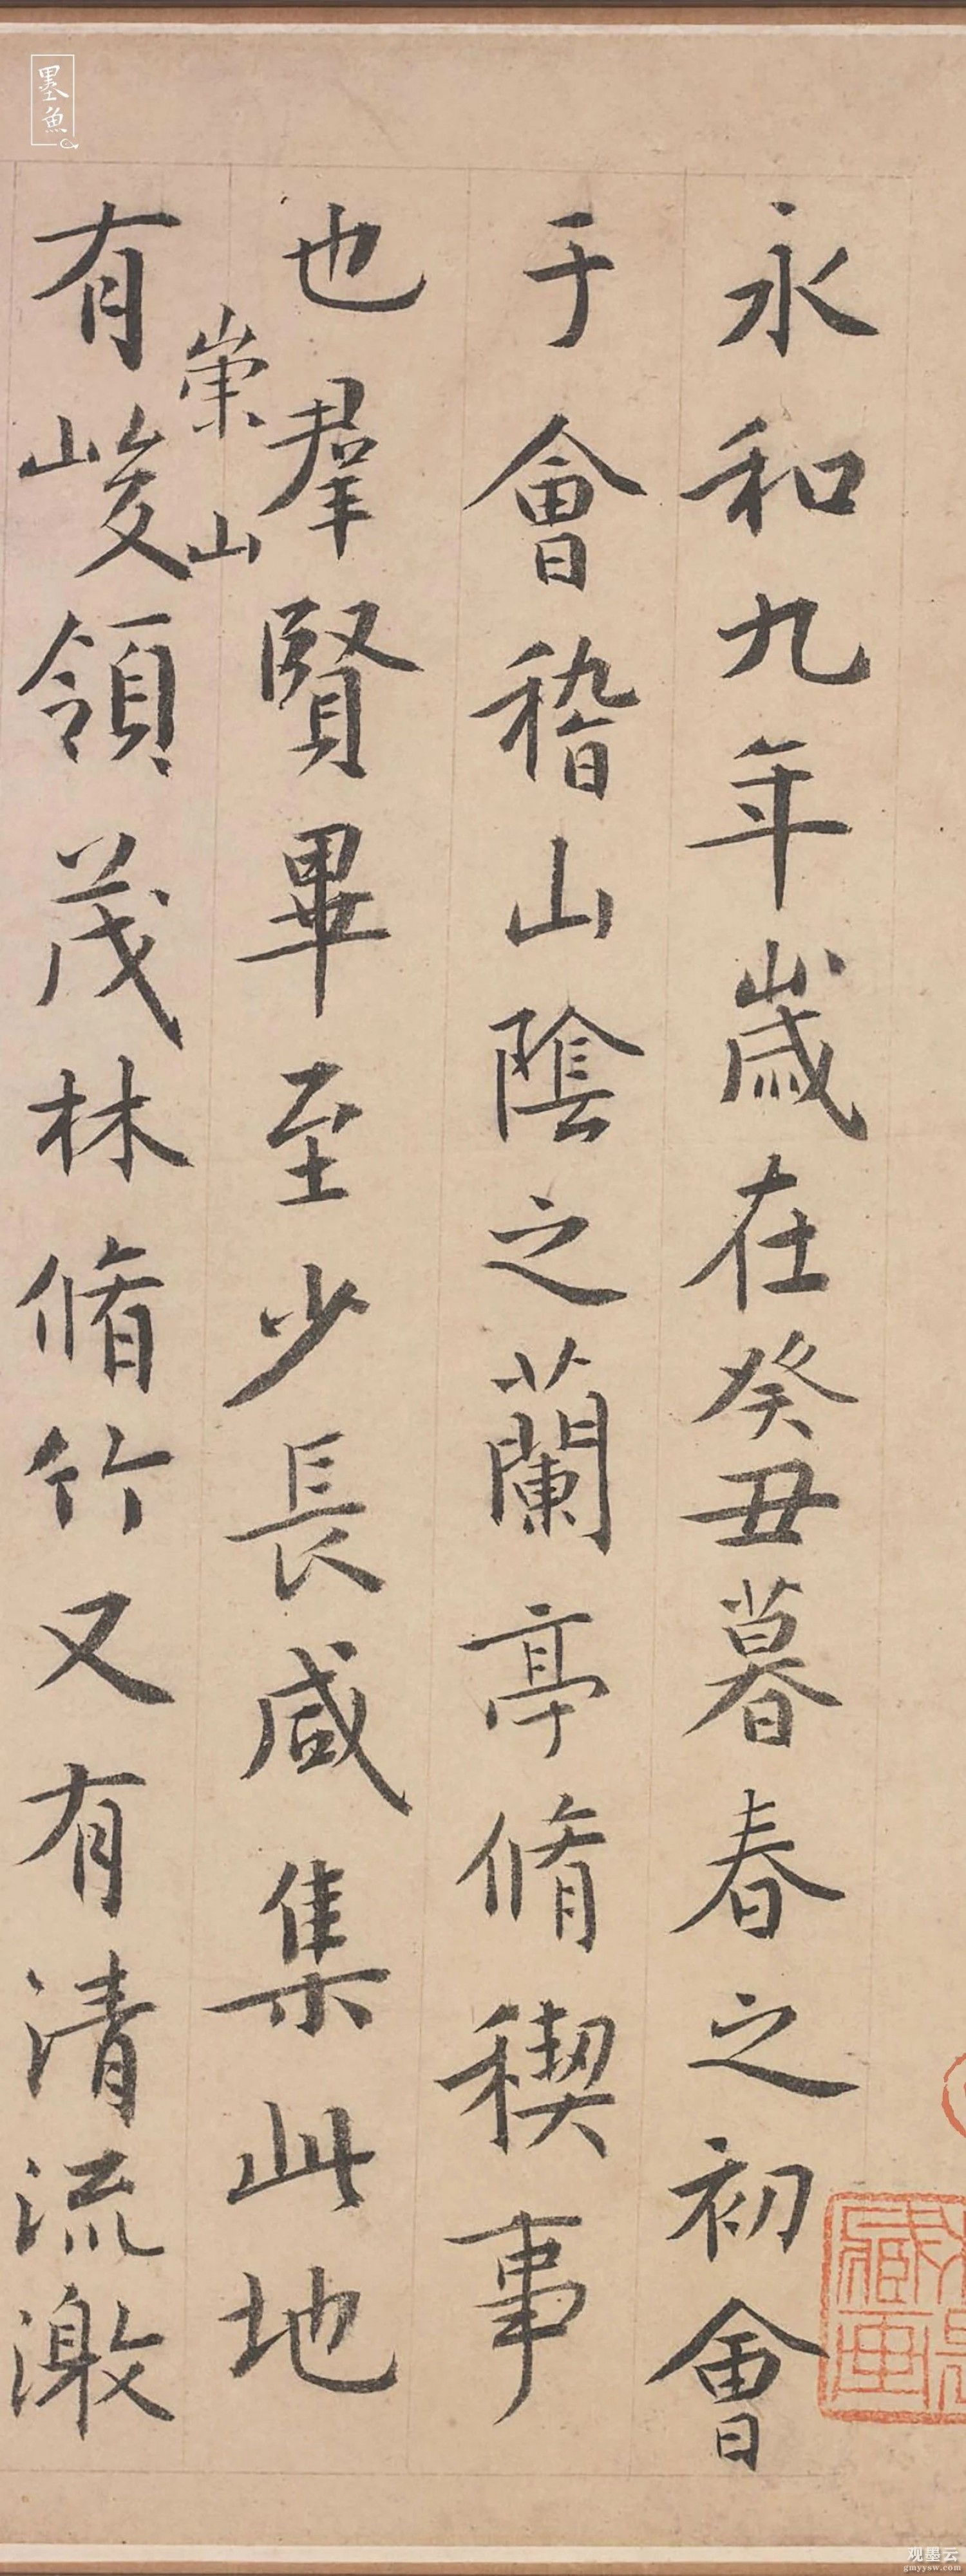 永和九年歲在癸丑暮春之初會
于會稽山陰之蘭亭脩稧事
也羣賢畢至少長咸集此地
崇山
有峻領茂林脩竹又有清流激
墨魚
观墨云
gmyysw.com